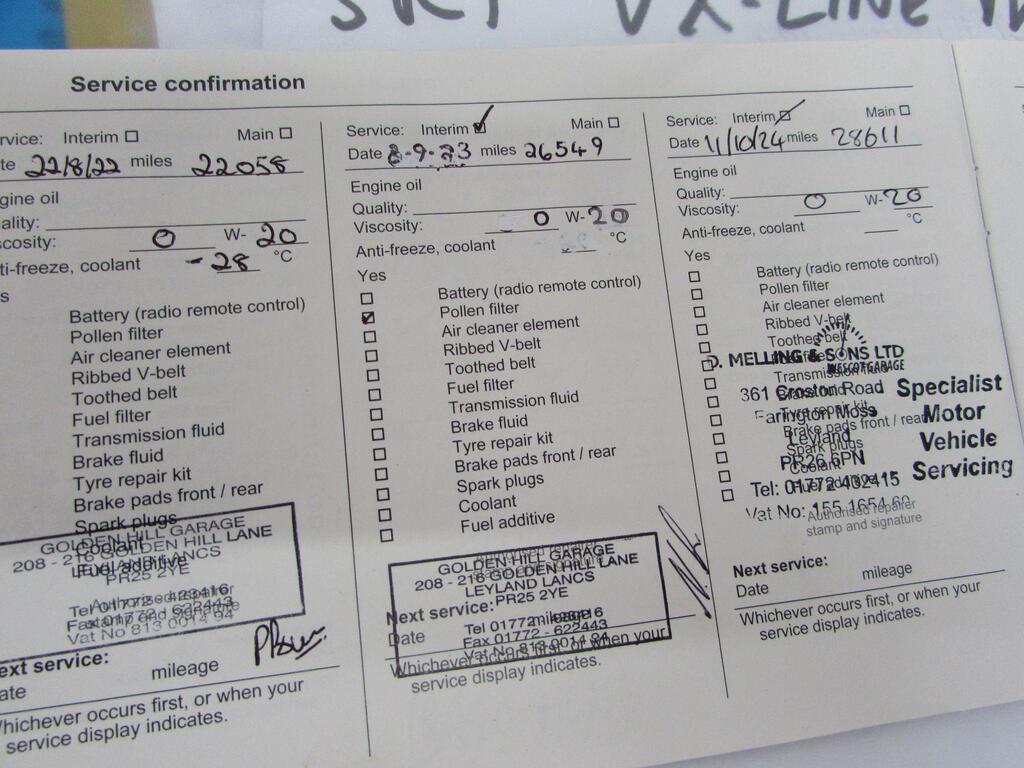 VX-LINE
Service confirmation
rvice: Interim Main
te 22/8/22 miles 22058
gine oil
ality:
scosity: 0 W- 20
ti-freeze, coolant -28 °C
s
Battery (radio remote control)
Pollen filter
Air cleaner element
Ribbed V-belt
Toothed belt
Fuel filter
Transmission fluid
Brake fluid
Tyre repair kit
Brake pads front / rear
Spark plugs
Coolant
Fuel additive
GOLDEN HILL GARAGE
208 - 216 GOLDEN HILL LANE
LEYLAND LANCS
PR25 2YE
Authorised repairer
stamp and signature
Tel 01772
Fax 01772 - 622443
Vat No 813 0014 94
ext service:
ate mileage
Whichever occurs first, or when your
service display indicates.
Service: Interim Main
Date 8-9-23 miles 26549
Engine oil
Quality:
Viscosity: 0 W-20
Anti-freeze, coolant °C
Yes
Battery (radio remote control)
Pollen filter
Air cleaner element
Ribbed V-belt
Toothed belt
Fuel filter
Transmission fluid
Brake fluid
Tyre repair kit
Brake pads front / rear
Spark plugs
Coolant
Fuel additive
GOLDEN HILL GARAGE
208 - 216 GOLDEN HILL LANE
LEYLAND LANCS
PR25 2YE
Tel 01772
Fax 01772 - 622443
Vat No 813 0014 94
Next service:
Date mileage
Whichever occurs first, or when your
service display indicates.
Service: Interim Main
Date 11/10/24 miles 28611
Engine oil
Quality:
Viscosity: 0 W-20
Anti-freeze, coolant °C
Yes
Battery (radio remote control)
Pollen filter
Air cleaner element
Ribbed V-belt
Toothed belt
Transmission fluid
Tyre repair kit
Brake pads front / rear
Spark plugs
Coolant
D. MELLING & SONS LTD
WESCOT GARAGE
361 Croston Road
Farington Moss
Leyland
PR26 6PN
Tel: 01772 432415
Vat No: 155 1654 60
Specialist
Motor
Vehicle
Servicing
Authorised repairer
stamp and signature
Next service:
Date mileage
Whichever occurs first, or when your
service display indicates.